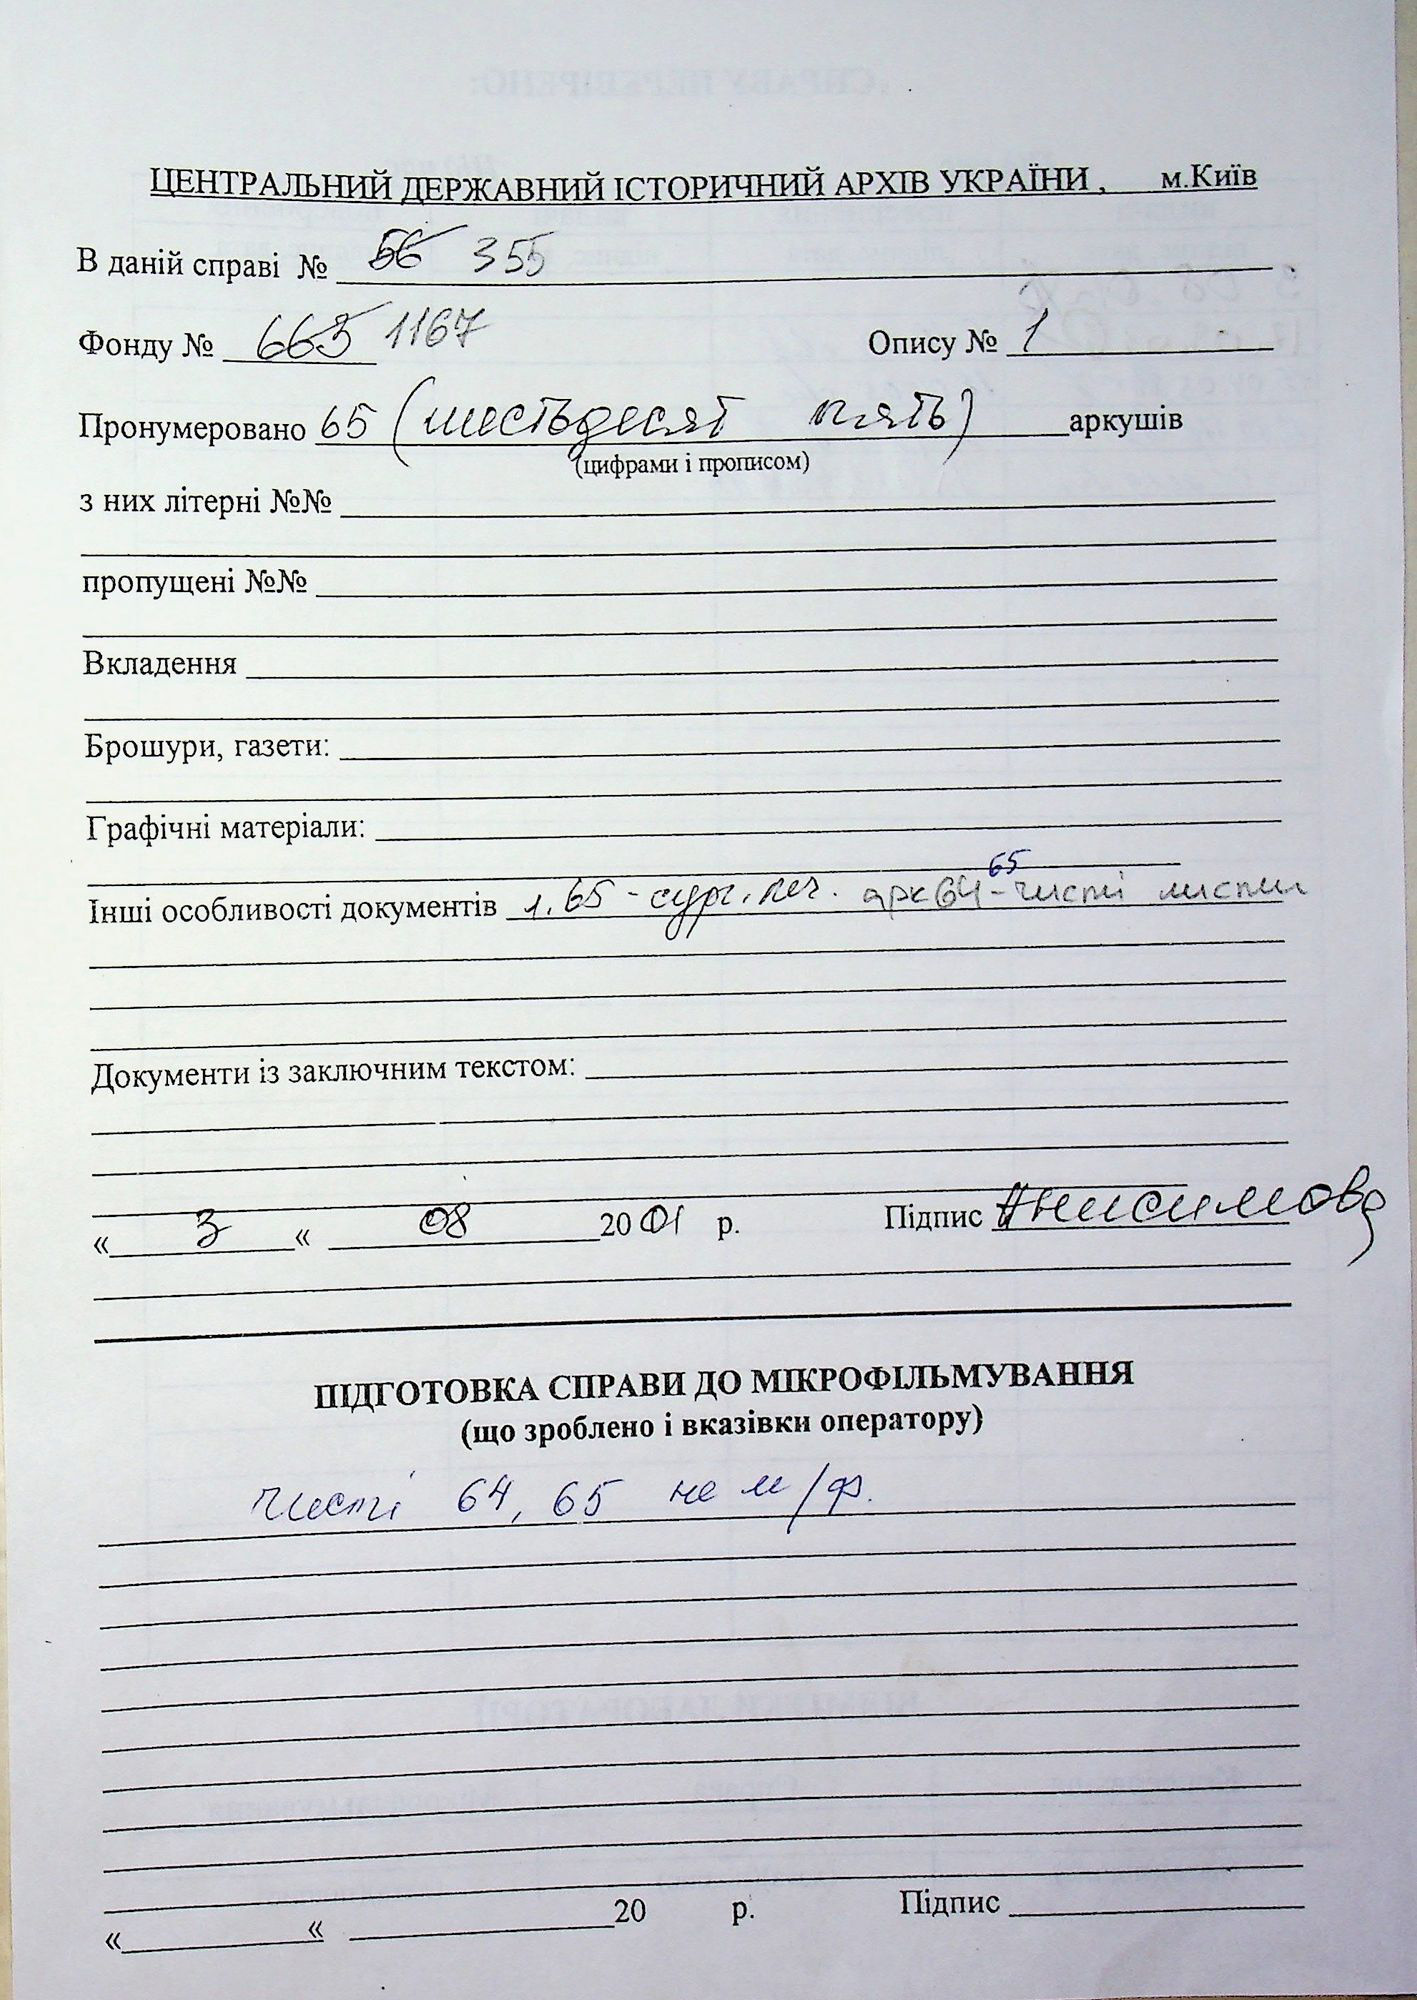 ЦЕНТРАЛЬНИЙ ДЕРЖАВНИЙ ІСТОРИЧНИЙ АРХІВ УКРАЇНИ , м.Київ
В даній справі № 56 355
Фонду № 665 1167 Опису № 1
Пронумеровано 65 (шестьдесят пять) аркушів
(цифрами і прописом)
з них літерні №№
пропущені №№
Вкладення
Брошури, газети:
Графічні матеріали:
65
Інші особливості документів 1. 65 - сург. печ. арк 64 - чисті листи
Документи із заключним текстом:
« 3 « 08 2001 р. Підпис Анисимова
ПІДГОТОВКА СПРАВИ ДО МІКРОФІЛЬМУВАННЯ
(що зроблено і вказівки оператору)
чисті 64, 65 не м/ф.
« « 20 р. Підпис